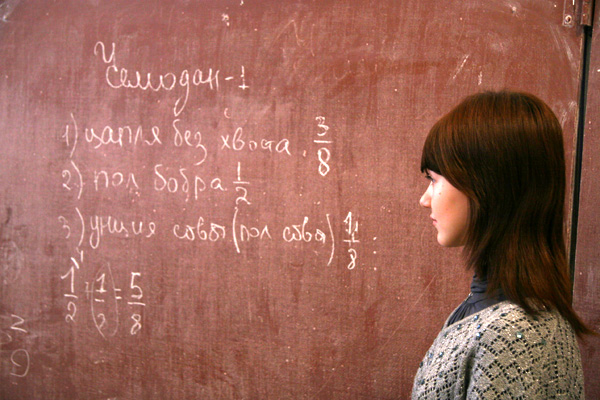 Чемодан-1
1) цапля без хвоста. 3/8
2) пол бобра 1/2
3) унция совы (пол совы) 1/8
1/2 + 1/2 = 5/8